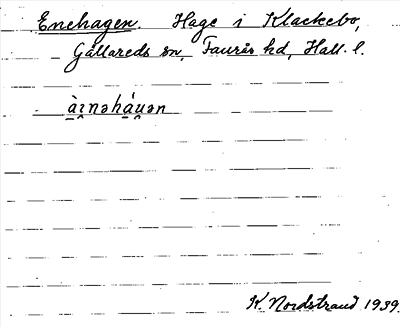 Enehagen. Hage i Klackebo,
Gällareds sn, Faurås hd, Hall. l.
à̱i̯nəhá̱u̯ən
K. Nordstrand 1939.